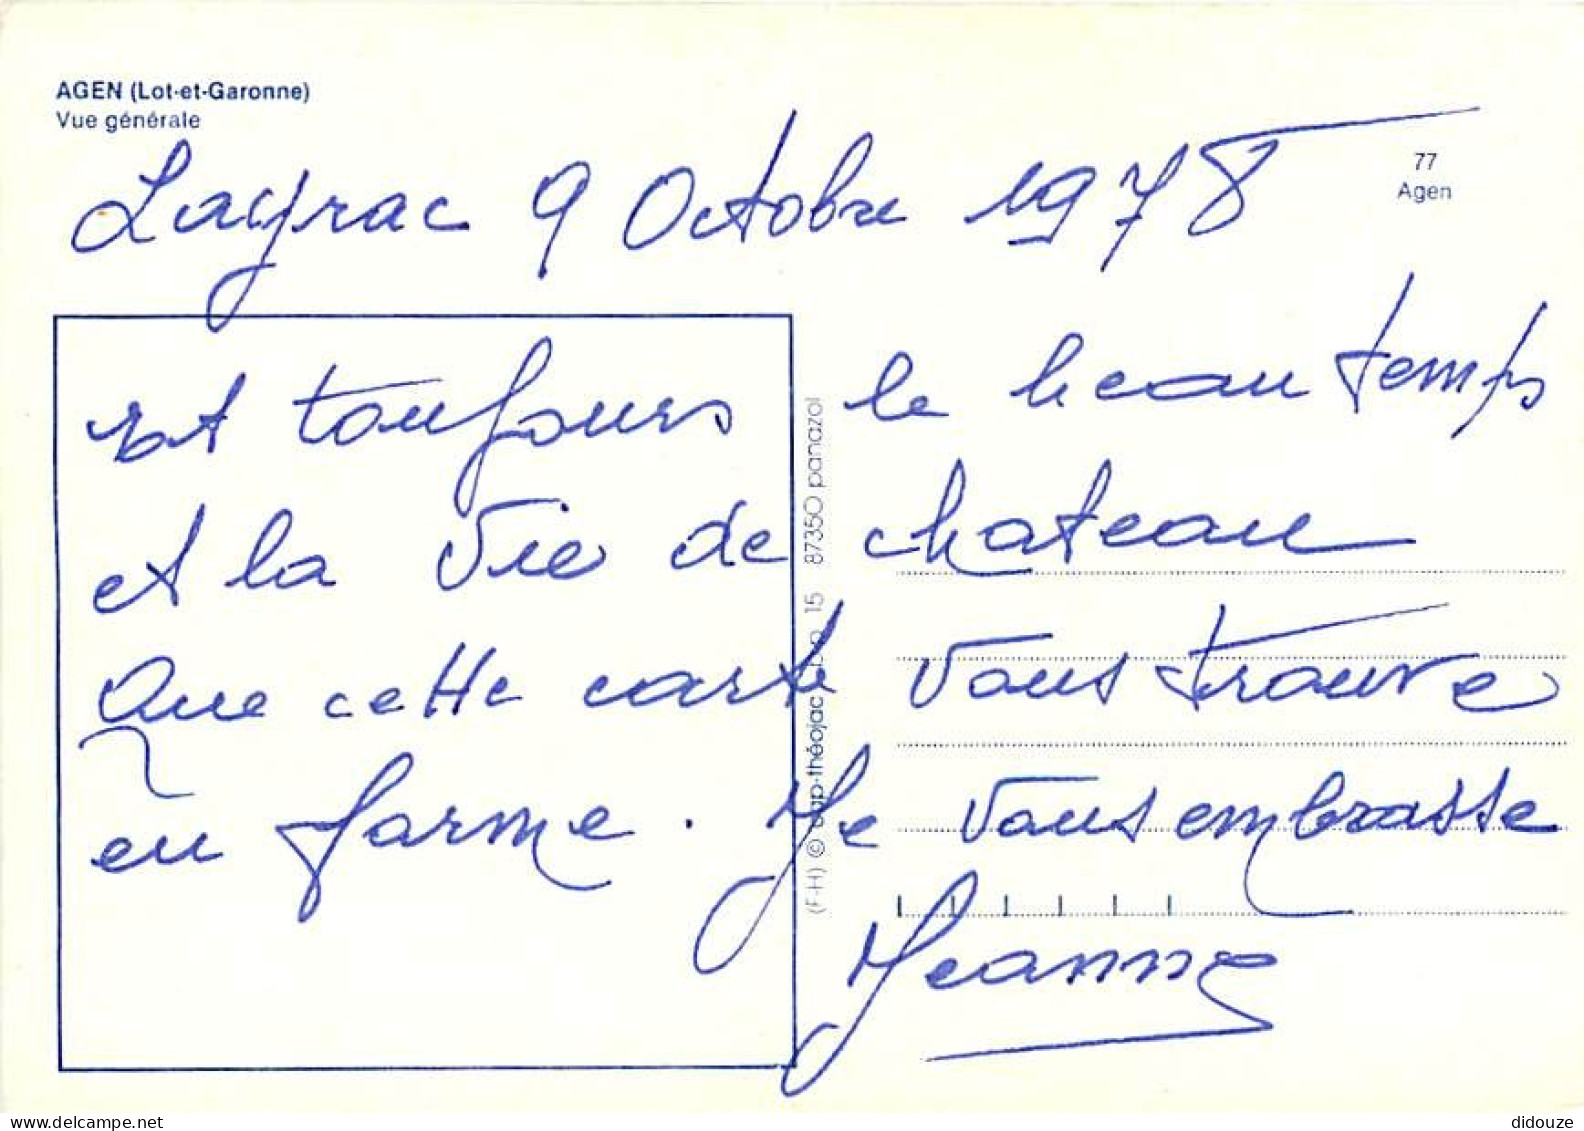 AGEN (Lot-et-Garonne)
Vue générale
77
Agen
Layrac 9 Octobre 1978
est toujours le beau temps
et la vie de chateau
Que cette carte vous trouve
en forme. Je vous embrasse
Jeanne
(F-H) © cap-théojac b.p. 15 87350 panazol
delcampe.net
didouze